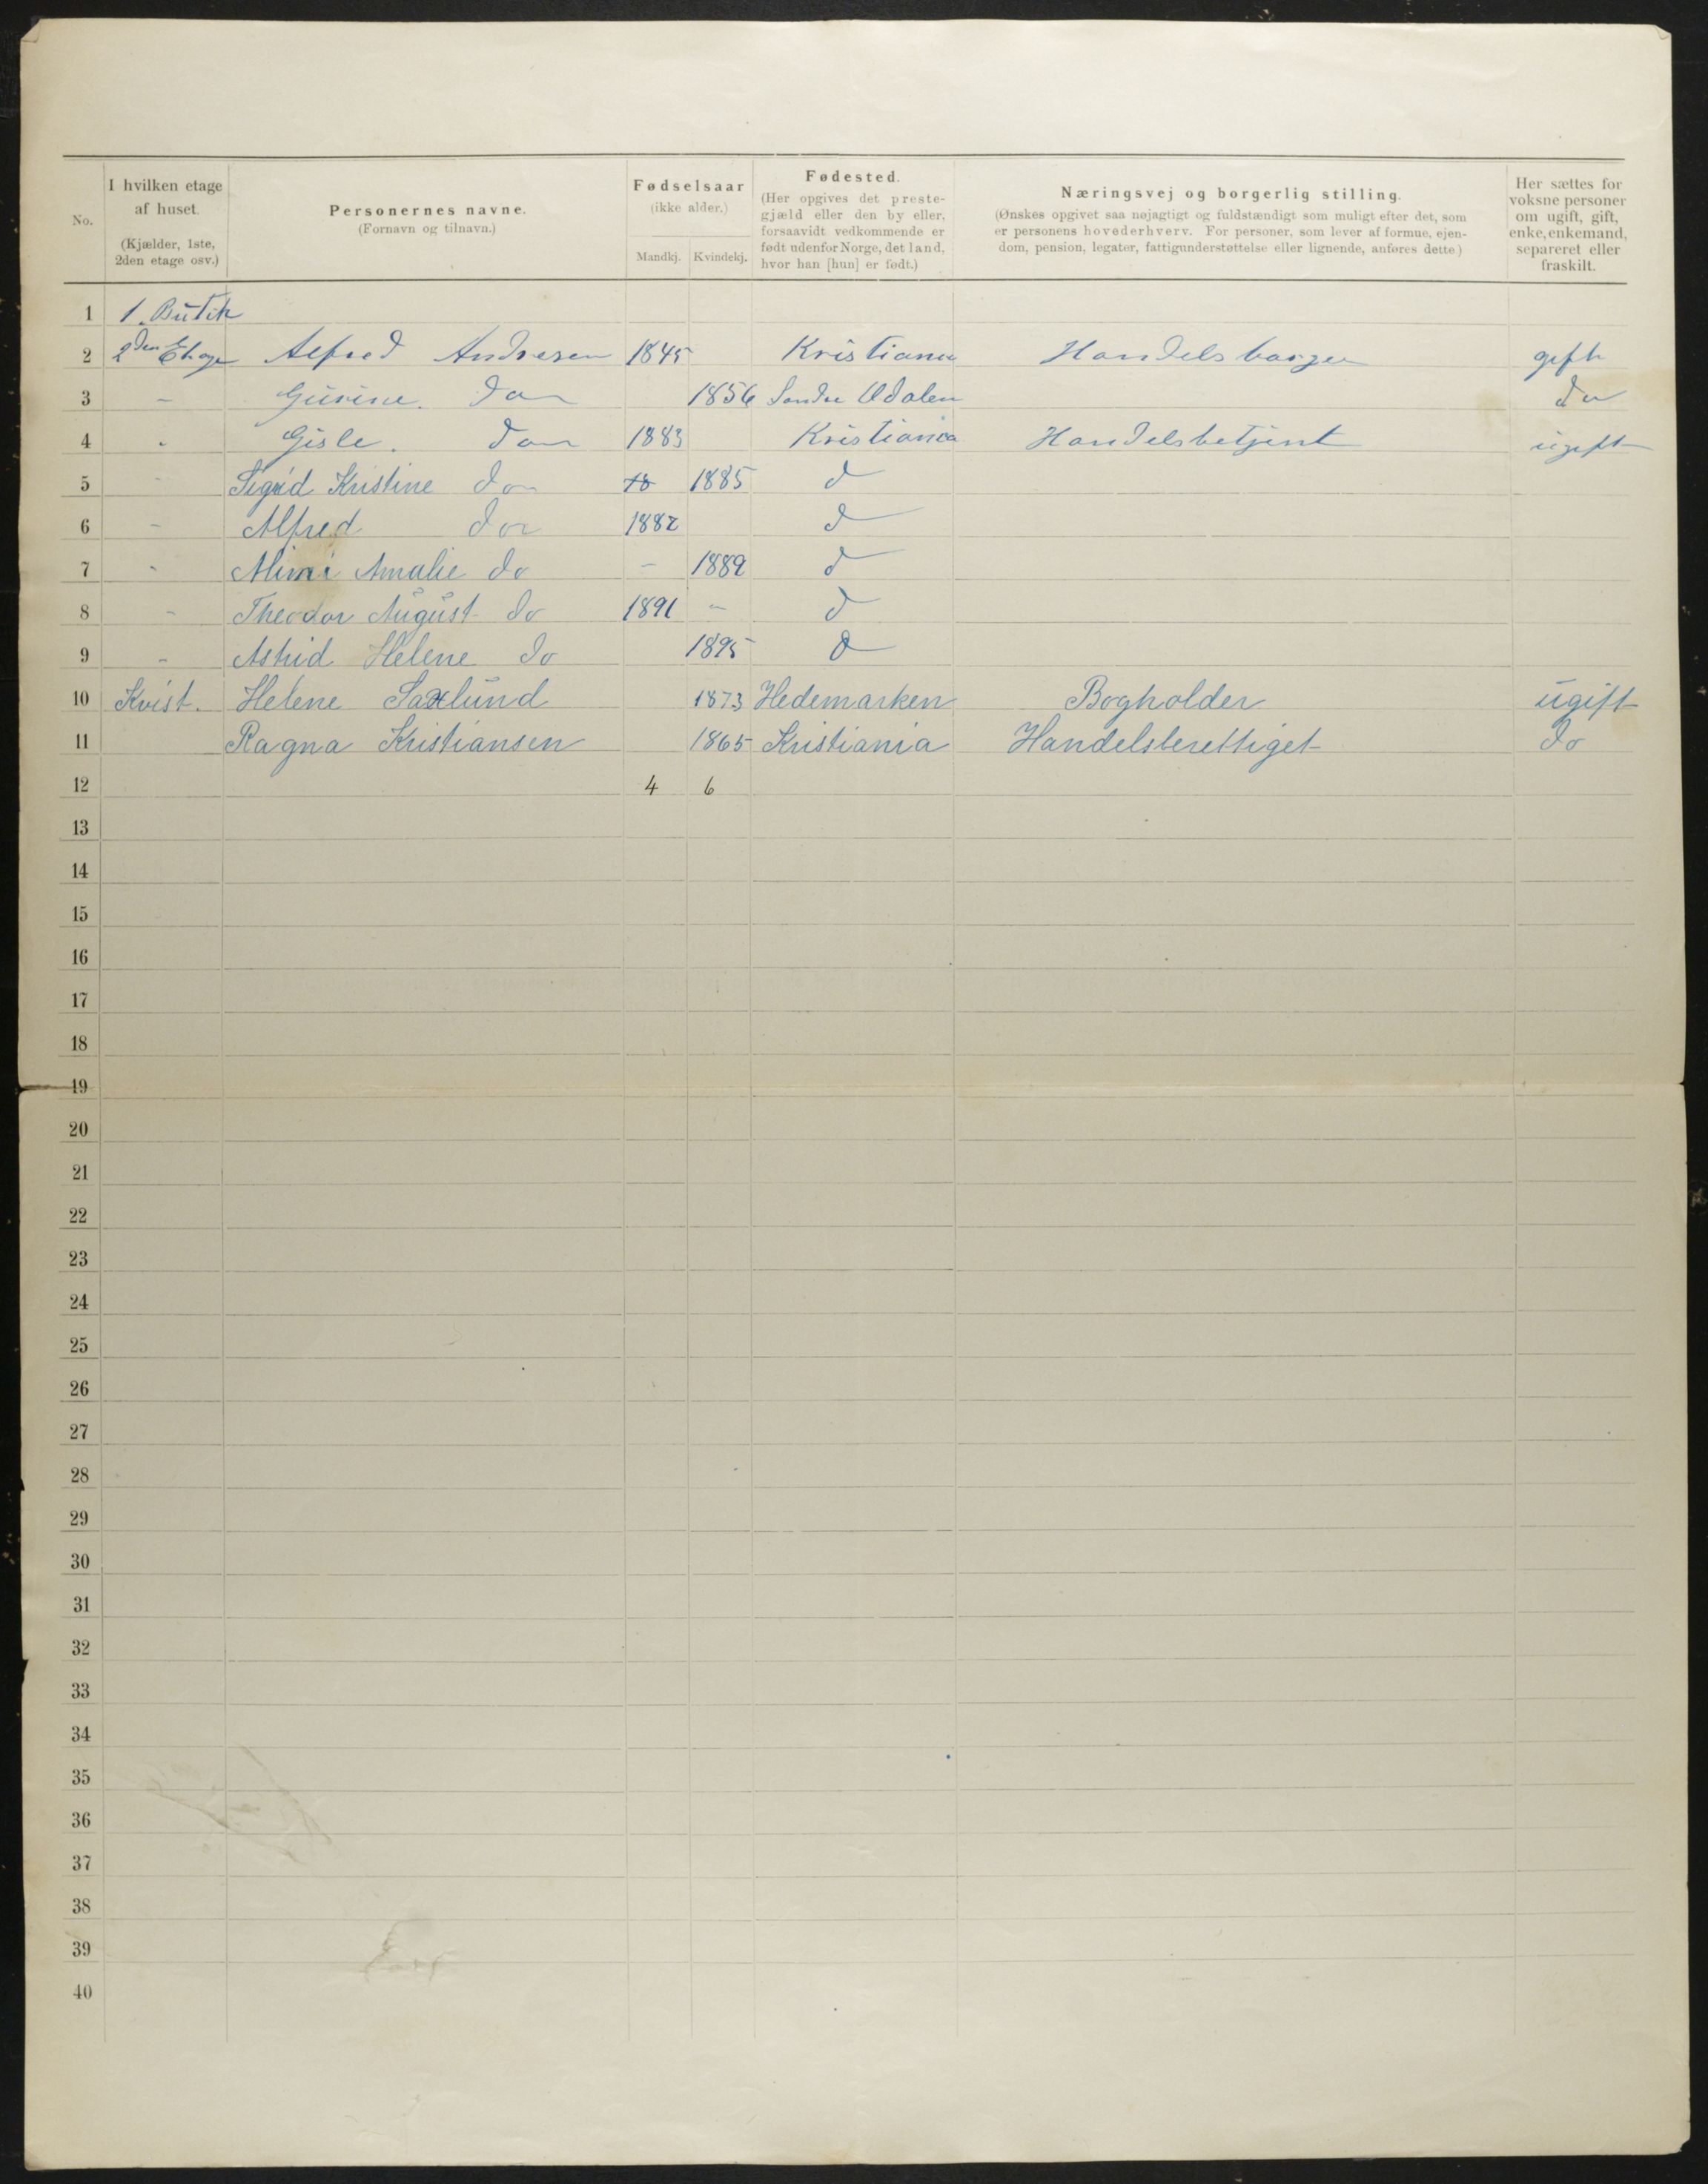 No. I hvilken etage af huset. (Kjælder, 1ste, 2den etage osv.) Personernes navne. (Fornavn og tilnavn.) Fødselsaar (ikke alder.) Mandkj. Kvindekj. Fødested. (Her opgives det prestegjæld eller den by eller, forsaavidt vedkommende er født udenfor Norge, det land, hvor han [hun] er født.) Næringsvej og borgerlig stilling. (Ønskes opgivet saa nøjagtigt og fuldstændigt som muligt efter det, som er personens hovederhverv. For personer, som lever af formue, ejendom, pension, legater, fattigunderstøttelse eller lignende, anføres dette.) Her sættes for voksne personer om ugift, gift, enke, enkemand, separeret eller fraskilt.
1 1. Butik
2 2den Etage Alfred Andresen 1845 Kristiania Handelsborger gift
3 – Gurine. do 1856 Søndre Odalen do
4 " Gisle. do 1883 Kristiania Handelsbetjent ugift
5 " Sigrid Kristine do 18 1885 d
6 – Alfred do 1887 d
7 " Mimi Amalie do – 1889 d
8 " Theodor August do 1891 – d
9 " Astrid Helene do 1895 d
10 Kvist. Helene Saxlund 1873 Hedemarken Bogholder ugift
11 Ragna Kristiansen 1865 Kristiania Handelsberettiget do
12 4 6
13
14
15
16
17
18
19
20
21
22
23
24
25
26
27
28
29
30
31
32
33
34
35
36
37
38
39
40